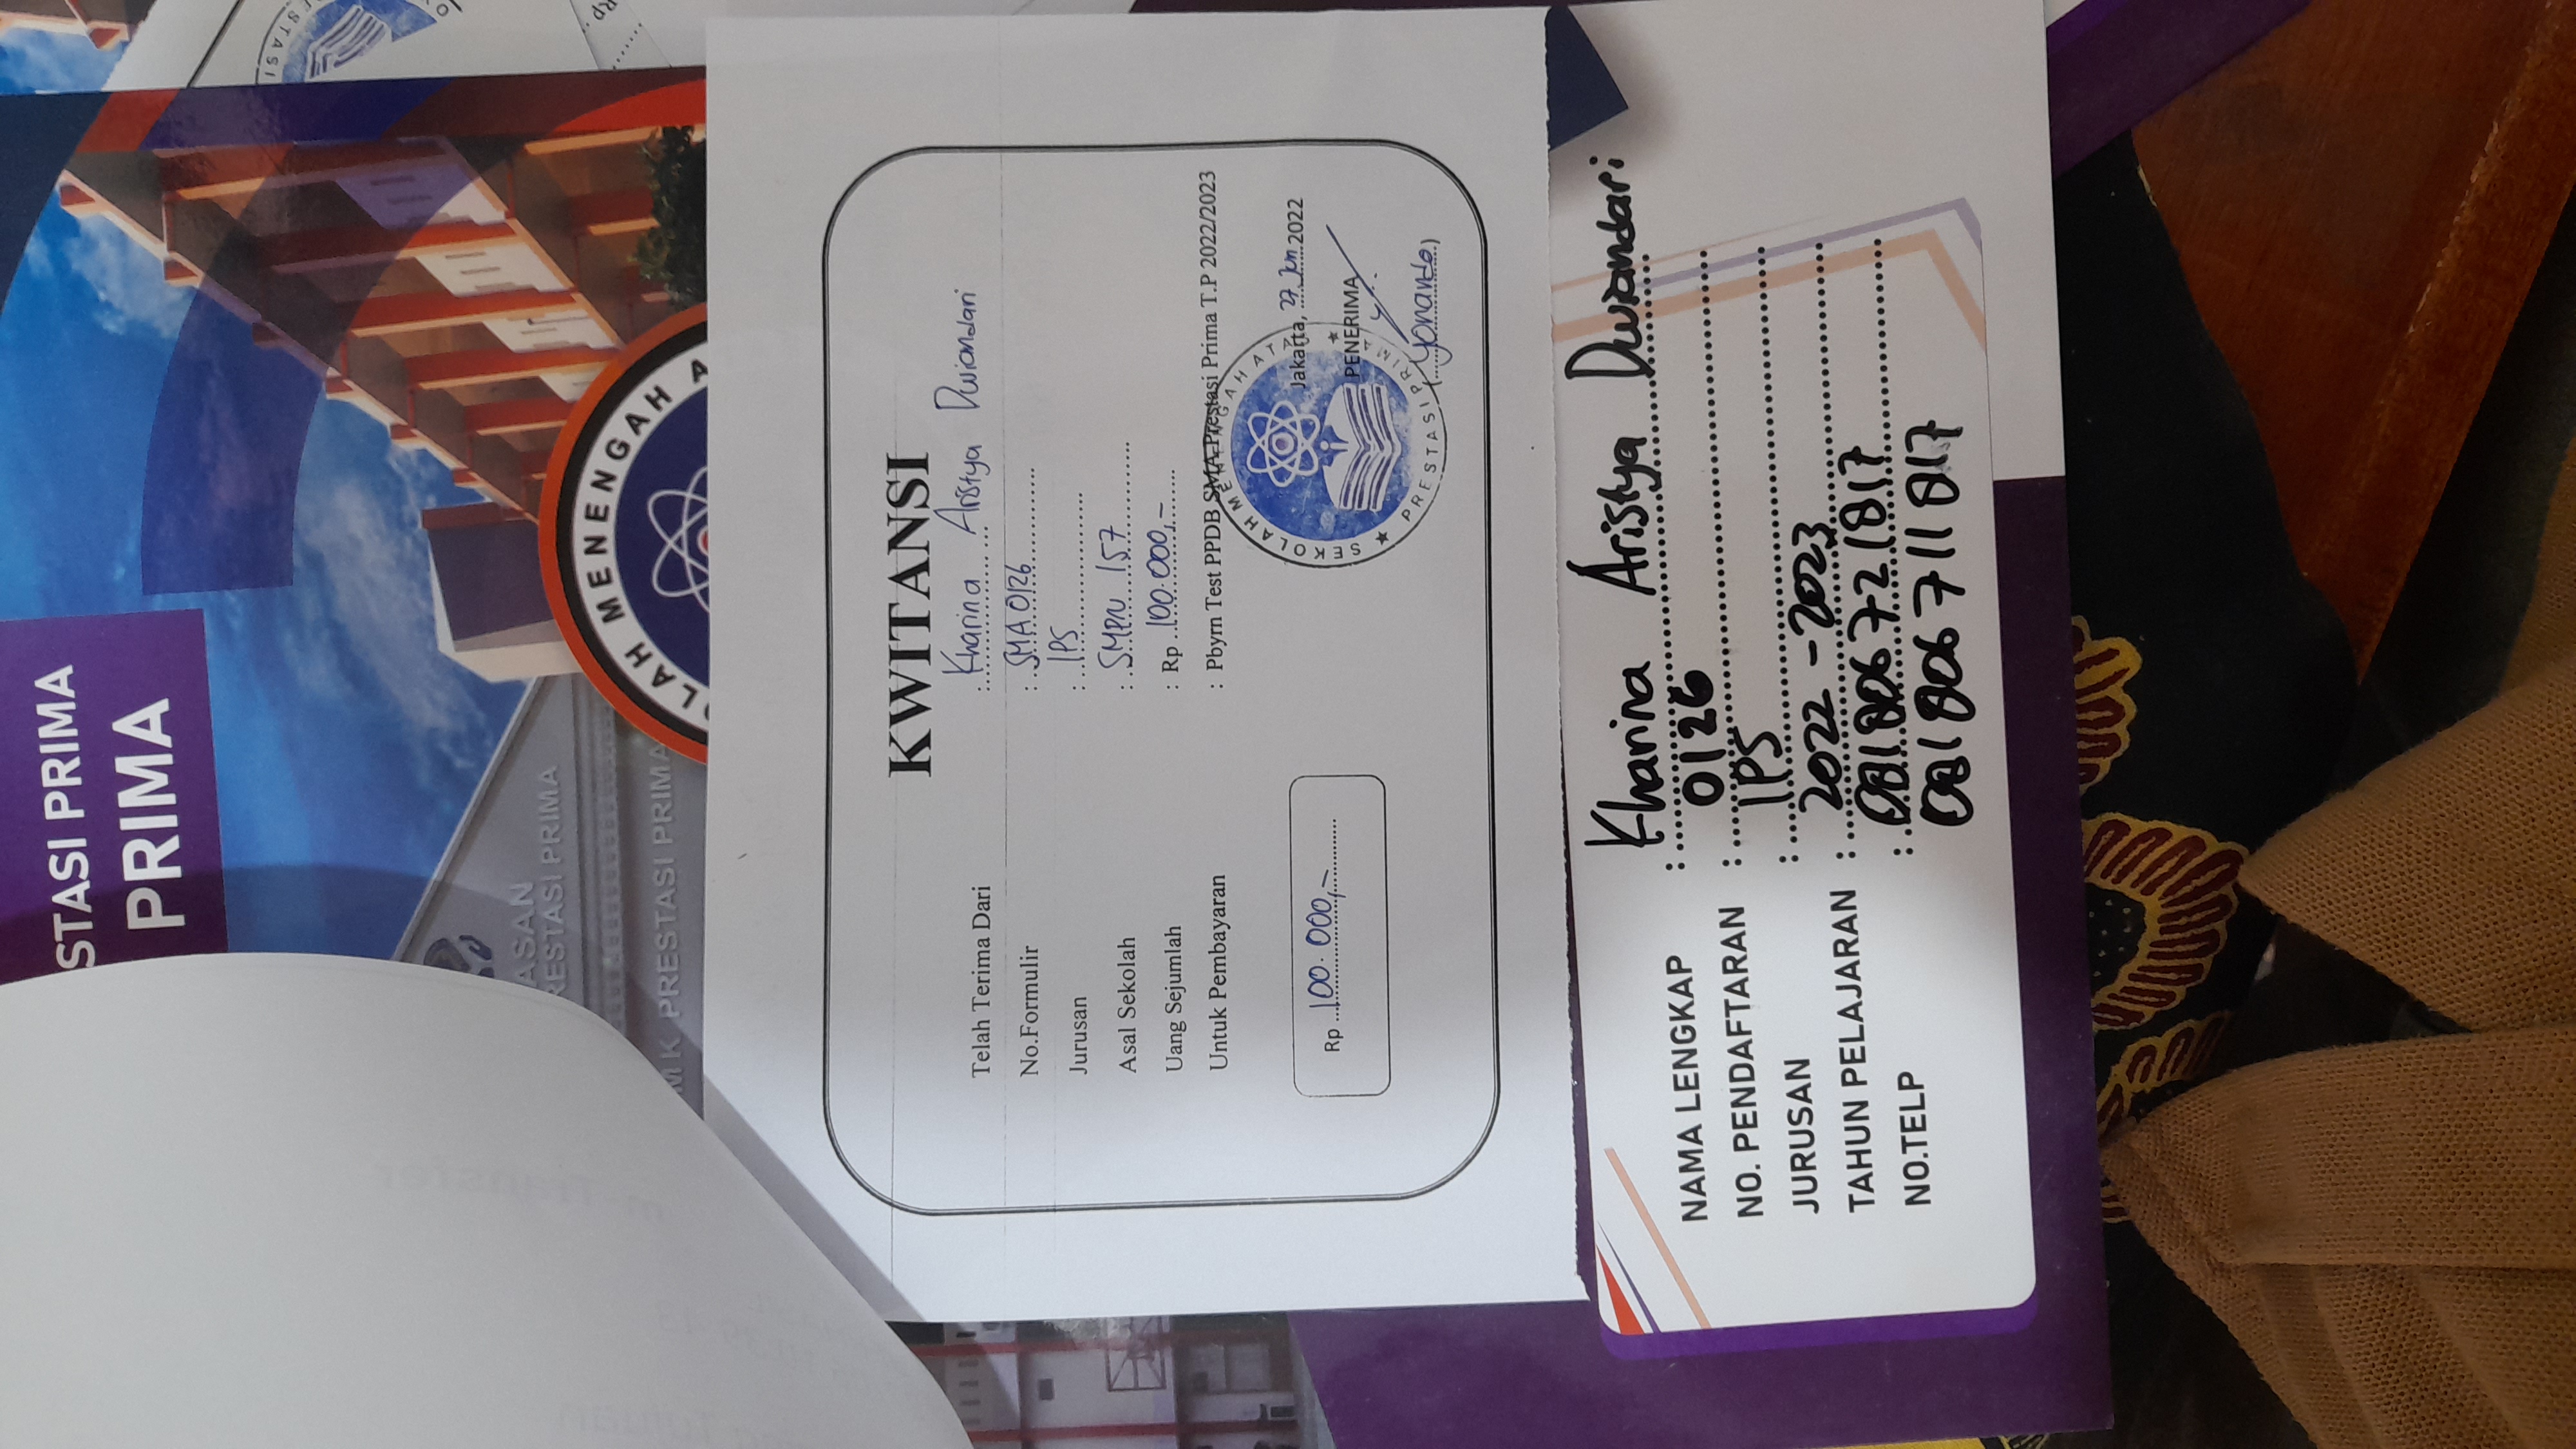 STASI PRIMA
PRIMA
LAH MENENGAH A
ASAN
RESTASI PRIMA
M K PRESTASI PRIMA
KWITANSI
Telah Terima Dari : Kharina Aristya Dwiandari
No.Formulir : SMA 0126
Jurusan : IPS
Asal Sekolah : SMPN 157
Uang Sejumlah : Rp 100.000,-
Untuk Pembayaran : Pbyrn Test PPDB SMA Prestasi Prima T.P 2022/2023
Jakarta, 27 Jun 2022
PENERIMA
Rp 100.000,-
(Yonando)
SEKOLAH MENENGAH ATAS ★ PRESTASI PRIMA ★
NAMA LENGKAP : Kharina Aristya Dwiandari
NO. PENDAFTARAN : 0126
JURUSAN : IPS
TAHUN PELAJARAN : 2022 - 2023
NO.TELP : 081806721817
081806711817